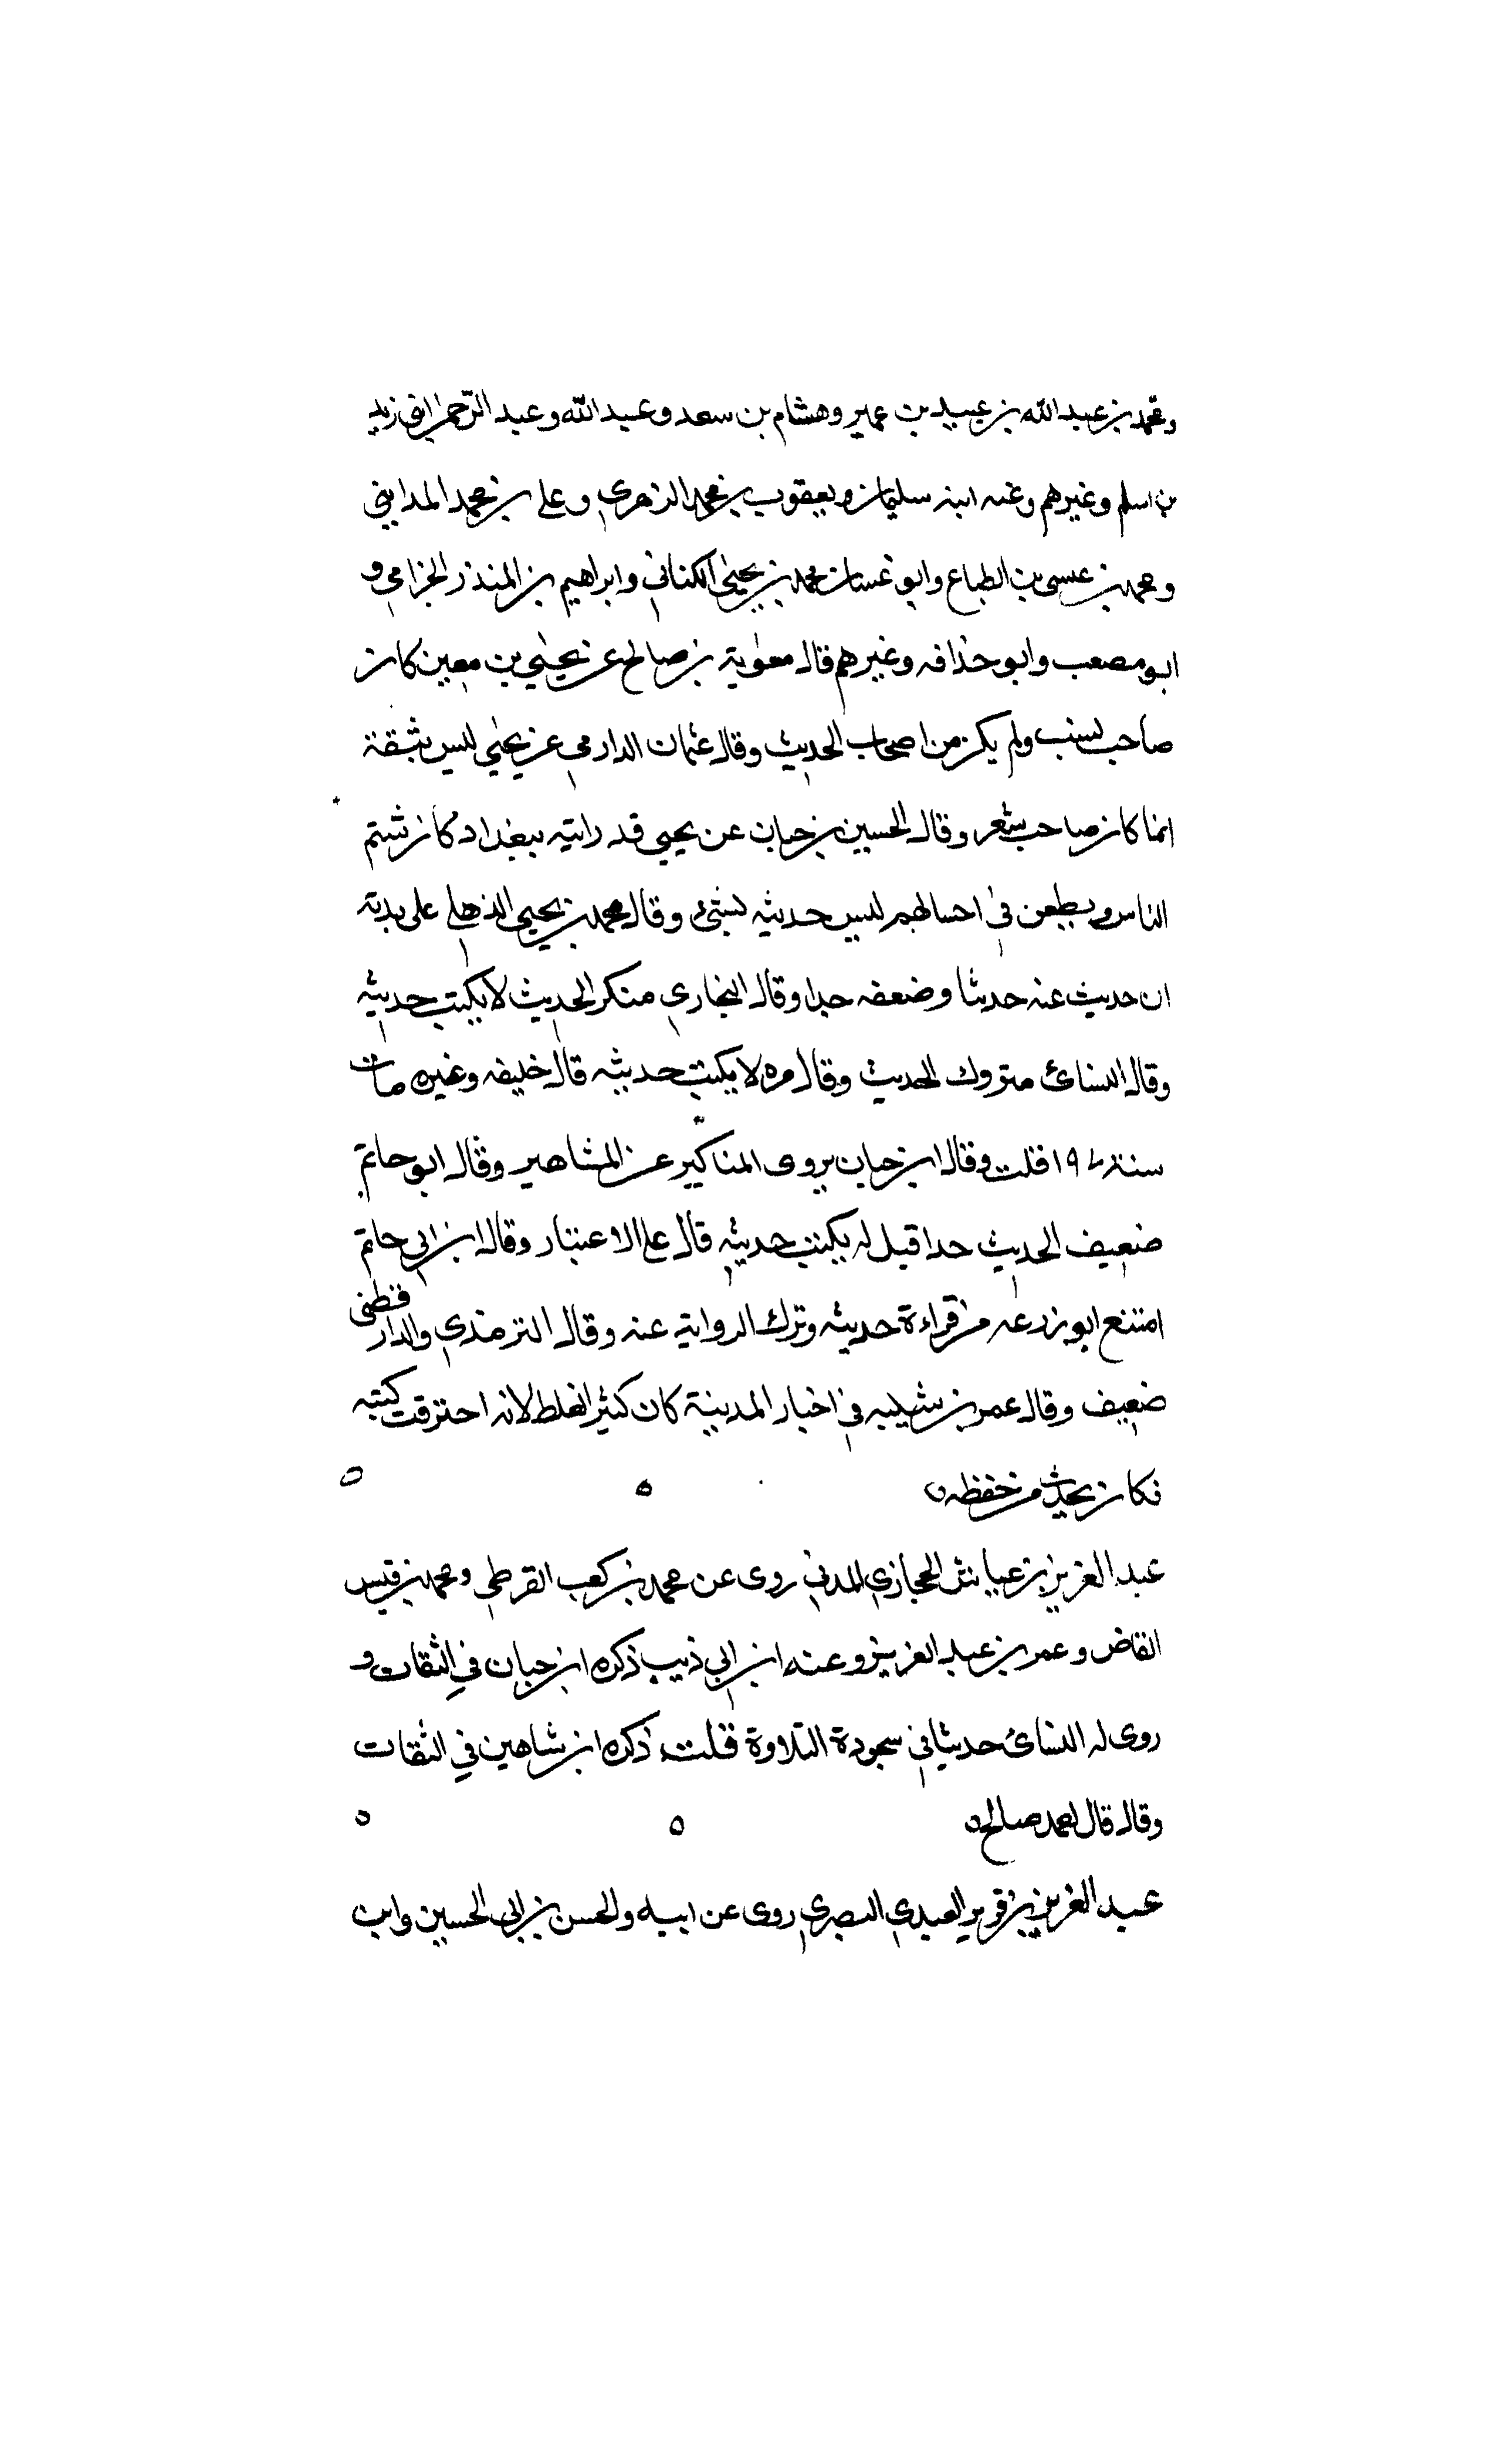 ومحمد بن عبد الله بن عبيد بن عمير وهشام بن سعد وعبد الله وعبد الرحمن ابني زيد
بن اسلم وغيرهم وعنه ابنه سليمان ويعقوب بن محمد الزهري وعلي بن محمد المدايني
ومحمد بن عيسى بن الطباع وابو غسان محمد بن يحيى الكناني وابراهيم بن المنذر الحزامي و
ابو مصعب وابو حذافه وغيرهم قال معوية بن صالح عن يحيى بن معين كان
صاحب نسب ولم يكن من اصحاب الحديث وقال عثمان الدارمي عن يحيى ليس بثقة
انما كان صاحب شعر وقال الحسين بن حبان عن يحيى قد رايته ببغداد كان يشتم
الناس ويطعن في احسابهم ليس حديثه بشئ وقال محمد بن يحيى الذهلي على بدنة
ان حديث عنه حديثا وضعفه جدا وقال البخاري منكر الحديث لا يكتب حديثه
وقال النسائ متروك الحديث وقال مره لا يكتب حديثه قال خليفه وغيره مات
سنة ١٩٧ قلت وقال ابن حبان يروى المناكير عن المشاهير وقال ابو حاتم
ضعيف الحديث جدا قيل له يكتب حديثه قال على الاعتبار وقال ابن ابي حاتم
امتنع ابو زرعه من قراءة حديثه وترك الرواية عنه وقال الترمذي والدارقطني
ضعيف وقال عمر بن شبيبه في اخبار المدينة كان كثير الغلط لانه احترقت كتبه
فكان يحدث من حفظه ه ه ه
عبد العزيز بن عياش الحجازي المدني روى عن محمد بن كعب القرظي ومحمد بن قيس
القاض وعمر بن عبد العزيز وعنه ابن ابي ذيب ذكره ابن حبان في الثقات و
روى له النسائ حديثا في سجودة التلاوة قلت ذكره ابن شاهين في الثقات
وقال قال احمد صالح ه ه ه
عبد العزيز بن قرير العبدي البصري روى عن ابيه والحسن بن ابي الحسين وابن